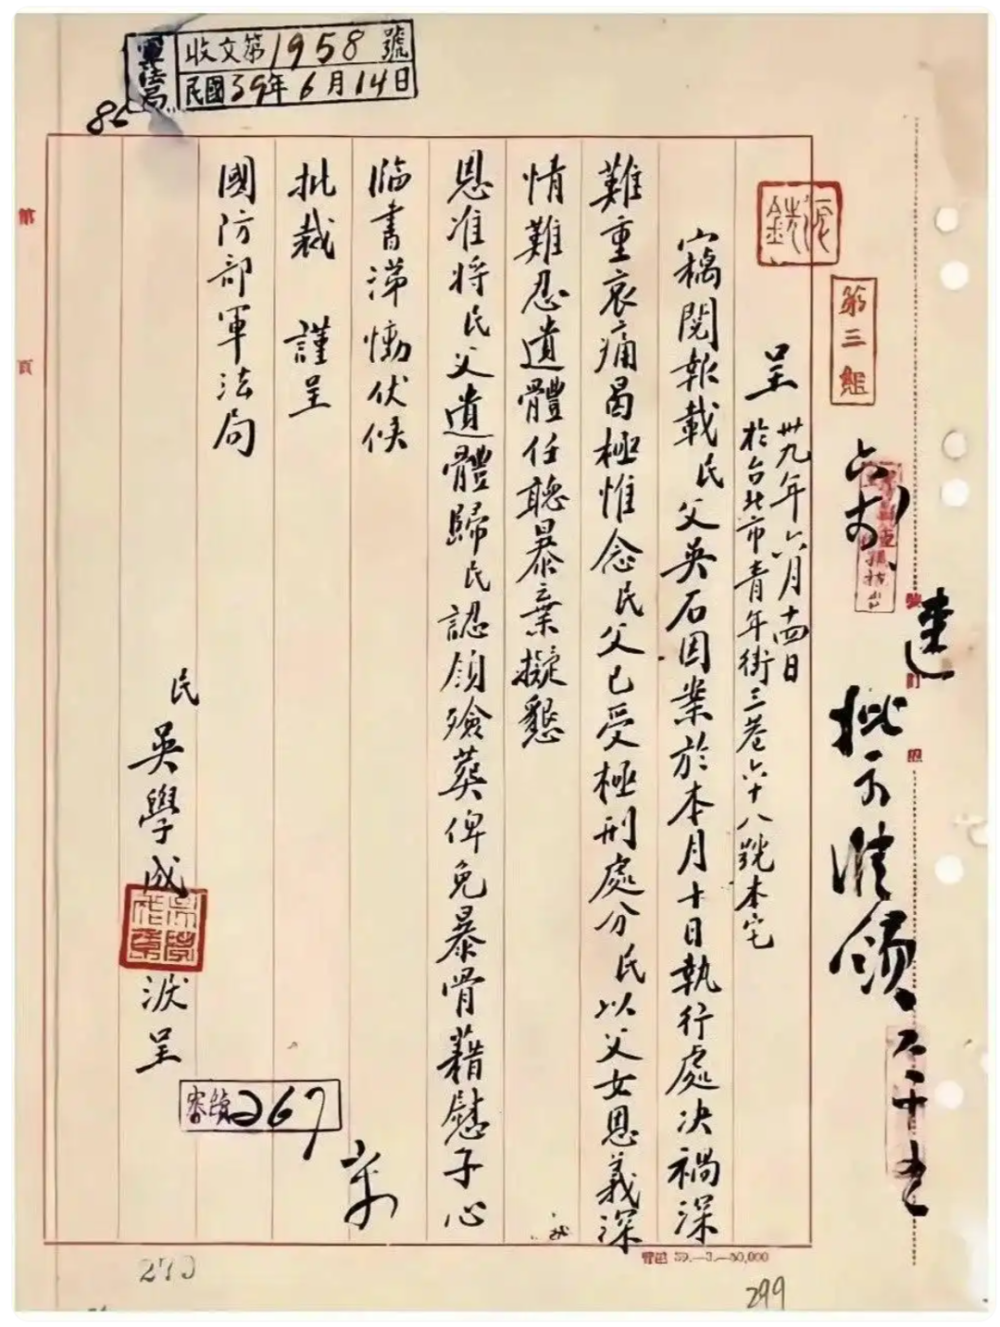 軍法局
收文第1958號
民國39年6月14日
第三組
呈
卅九年六月十四日
於台北市青年街三巷六十八號本宅
竊閱報載民父吳石因案於本月十日執行處決禍深
難重哀痛曷極惟念民父已受極刑處分民以父女恩義深
情難忍遺體任聽暴棄擬懇
恩准將民父遺體歸民認領殮葬俾免暴骨藉慰子心
臨書涕慟伏候
批裁 謹呈
國防部軍法局
民
吳學成
淚呈
267
第 頁
270
299
39.—3.—50,000